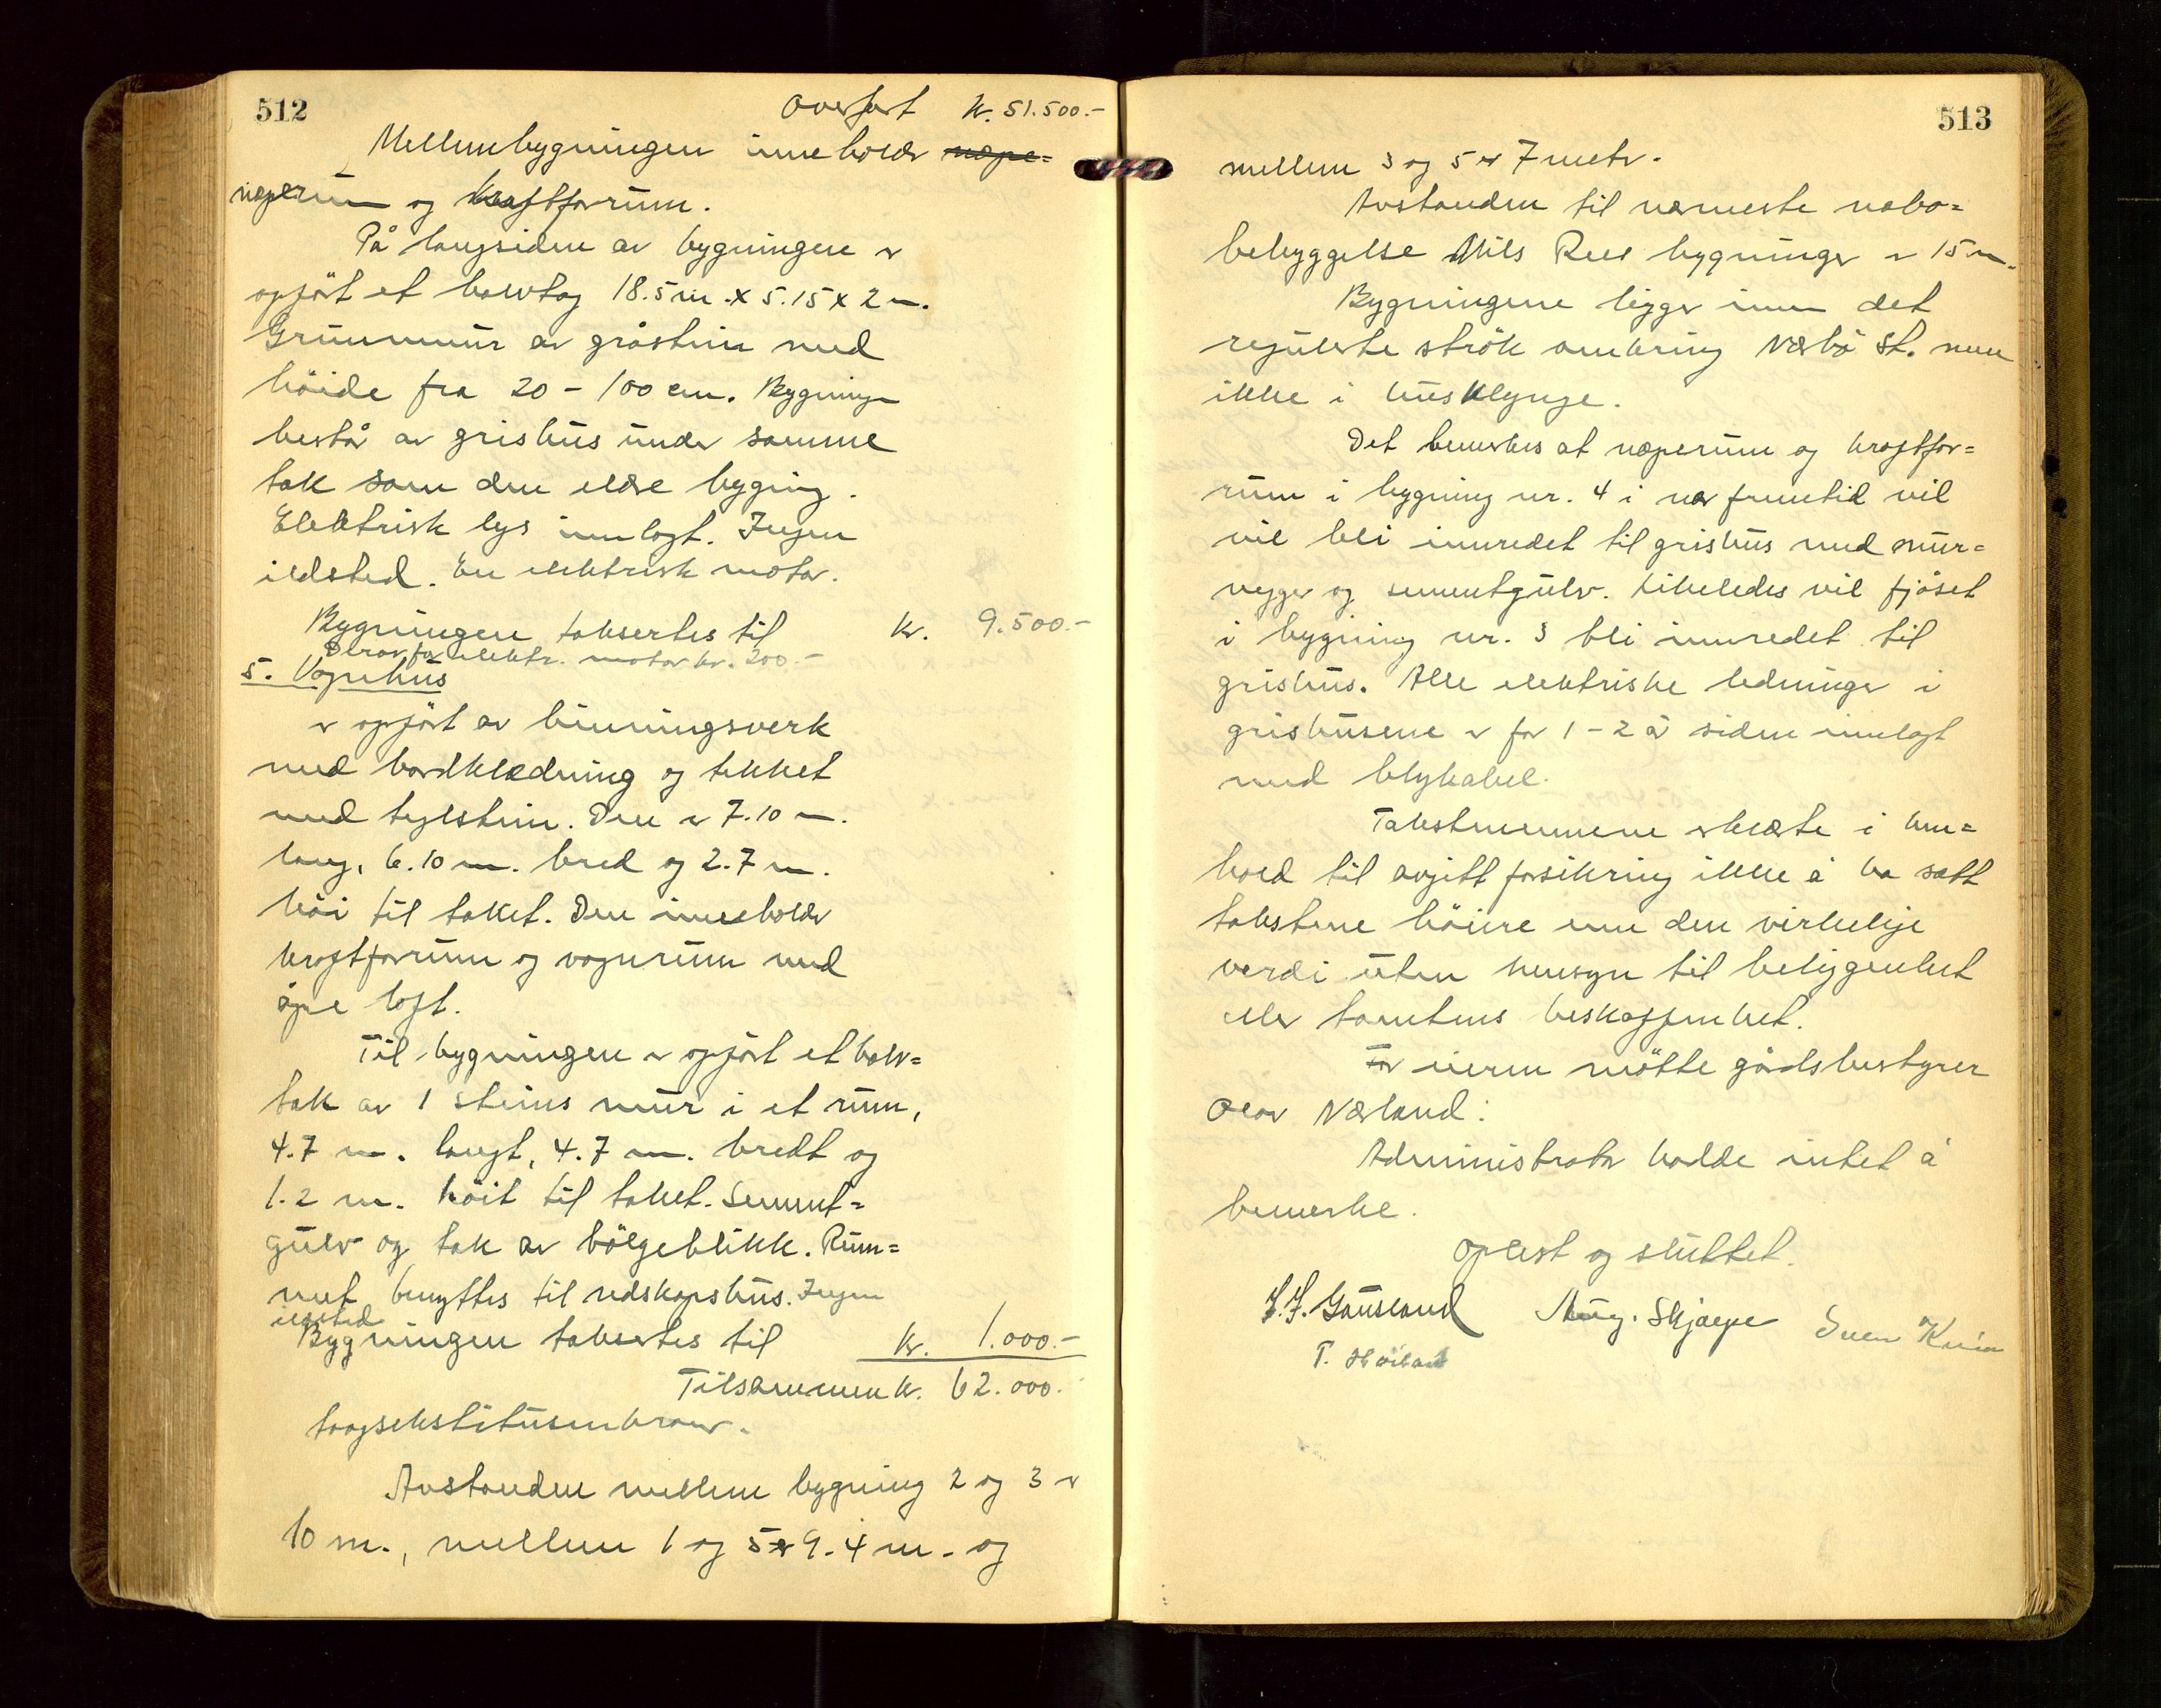 512
Overført kr. 51.500.-
Mellembygningen inneholder næpe=
næperum og kraftforrum.
På langsiden av bygningen er
opført et halvtag 18.5 m. x 5.15 x 2 m.
Grunnmur av gråstein med
höide fra 20 - 100 cm. Bygningen
består av grishus under samme
tak som den eldre bygning.
Elektrisk lys innlagt. Ingen
ildsted. En elektrisk motor.
Bygningen taksertes til kr. 9.500.-
Derav for elektr. motor kr. 200.-
5. Vognhus
er opfört av binningsverk
med bordklædning og tekket
med teglstein. Den er 7.10 m.
lang, 6.10 m. bred og 2.7 m.
höi til taket. Den inneholder
kraftforrum og vognrum med
åpne loft.
Til bygningen er opfört et halv=
tak av 1 steins mur i et rum,
4.7 m. langt, 4.7 m. bredt og
1.2 m. höit til taket. Sement=
gulv og tak av bölgeblikk. Rum=
met benyttes til redskapshus. Ingen
ildsted
Bygningen taksertes til kr. 1.000.-
Tilsammen kr. 62.000.
toogsekstitusenkroner.
Avstanden mellem bygning 2 og 3 er
10 m., mellem 1 og 5 er 9.4 m. og
513
mellem 3 og 5 er 7 meter.
Avstanden til nærmeste nabo=
bebyggelse Nils Rees bygninger er 15 m.
Bygningene ligger innen det
regulerte strök omkring Nærbö St. men
ikke i husklynge.
Det bemerkes at næperum og kraftfor=
rum i bygning nr. 4 i nær fremtid vil
vil bli innredet til grishus med mur=
vegger og sementgulv. Likeledes vil fjöset
i bygning nr. 3 bli innredet til
grishus. Alle elektriske ledninger i
grishusene er for 1-2 år siden innlagt
med blykabel.
Takstmennene erklærte i hen=
hold til avgitt forsikring ikke å ha satt
takstene höiere enn den virkelige
verdi uten hensyn til beliggenhet
eller tomtens beskaffenhet.
For eieren mötte gårdsbestyrer
Olav Nærland:
Administrator hadde intet å
bemerke.
Oplest og sluttet.
J. J. Gausland Aug. Skjæpe Sven Kvia
T. Höiland